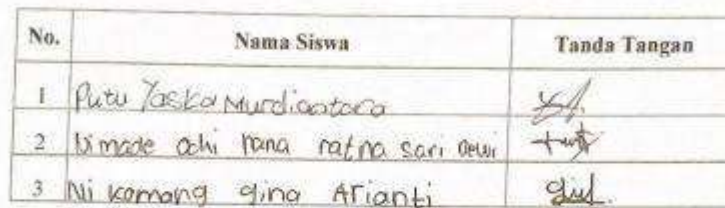 No. Nama Siswa Tanda Tangan
1 Putu Yaska Murdiantara
2 Ni made ochi rana ratna sari dewi
3 Ni komang gina Arianti